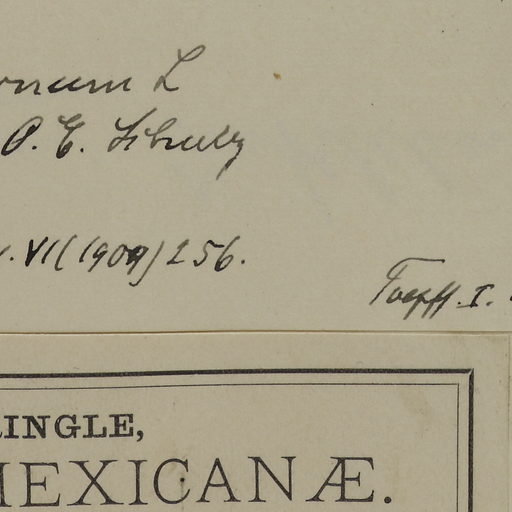 L
O. E. Schulz
. VI (1909) 256.
Toepff. I.
INGLE,
MEXICANÆ.